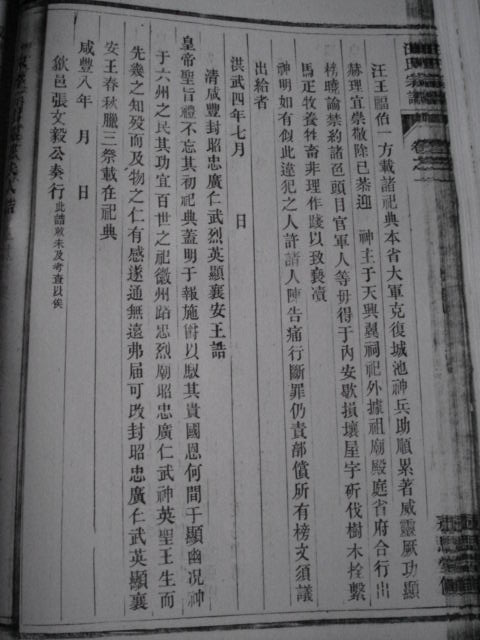 汪王福佑一方載諸祀典本省大軍克復城池神兵助順累著威靈厥功顯
赫理宜崇敬除已恭迎　神主于天興翼祠祀外據祖廟殿庭省府合行出
榜曉諭禁約諸邑頭目官軍人等毋得于內安歇損壞屋宇斫伐樹木拴繫
馬疋牧養牲畜非理作踐以致褻凟
神明如有似此違犯之人許諸人陳告痛行斷罪仍責部償所有榜文須議
出給者
洪武四年七月　　日
清咸豐封昭忠廣仁武烈英顯襄安王誥
皇帝聖旨禮不忘其初祀典蓋明于報施爵以馭其貴國恩何間于顯幽況神
于六州之民其功宜百世之祀徽州路忠烈廟昭忠廣仁武神英聖王生而
先幾之知歿而及物之仁有感遂通無遠弗屆可改封昭忠廣仁武英顯襄
安王春秋臘三祭載在祀典
咸豐八年　月　日
歙邑張文毅公奏行此譜敕未及考查以俟
汪氏宗譜
卷之